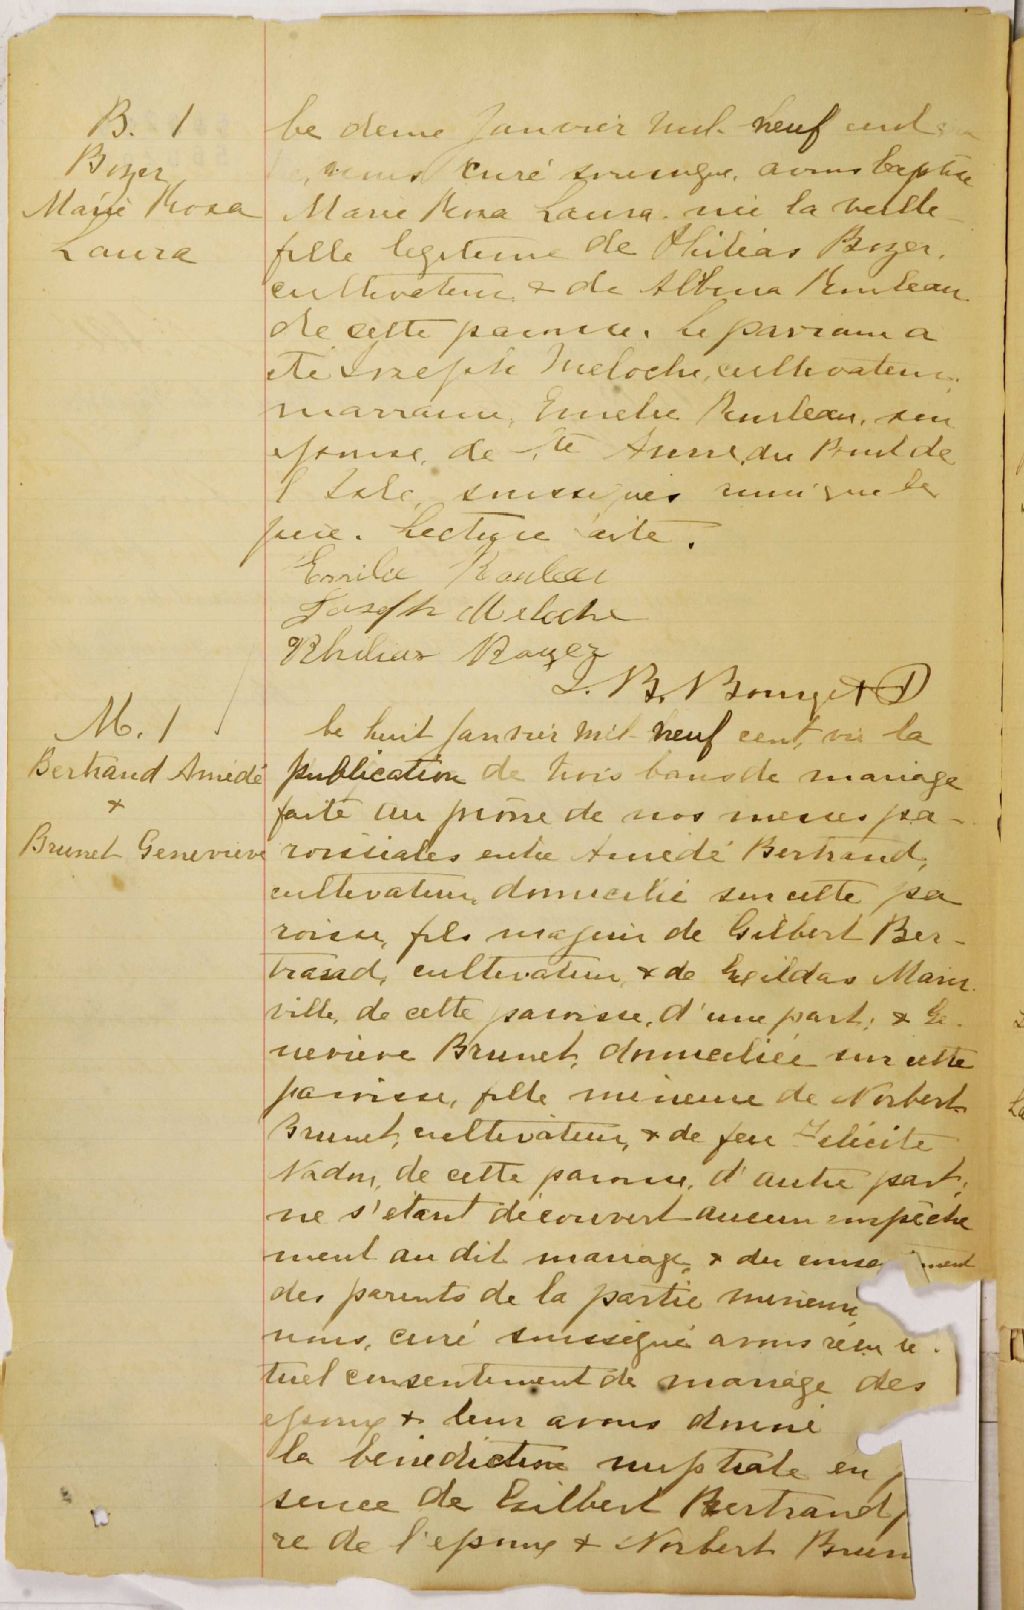 B. 1
Boyer
Marie Rosa
Laura
Le deme Janvier mil neuf cent
nous curé soussigné, avons baptisé
Marie Rosa Laura née la veille
fille legitime de Philias Boyer,
cultivateur, & de Albina Rouleau
de cette paroisse. Le parrain a
été Joseph Meloche, cultivateur,
marraine, Emelie Rouleau, son
épouse, de Ste Anne du Bout de
l'Isle, soussignés ainsi que le
père. Lecture faite.
Emilie Rouleau
Joseph Meloche
Philias Boyer
J. B. Bourget P
M. 1
Bertrand Amédé
&
Brunet Genevieve
Le huit Janvier mil neuf cent, vu la
publication de trois bans de mariage
faite au prône de nos messes pa-
roissiales entre Amédé Bertrand,
cultivateur, domicilié sur cette pa
roisse, fils majeur de Gilbert Ber-
trand, cultivateur, & de Exildas Marin
ville, de cette paroisse, d'une part; & Ge-
neviève Brunet, domiciliée sur cette
paroisse, fille mineure de Norbert
Brunet, cultivateur, & de feu Félicité
Nadon, de cette paroisse, d'autre part;
ne s'étant découvert aucun empêche
ment au dit mariage, & du conse ment
des parents de la partie mineure
nous, curé soussigné avons reçu le
tuel consentement de mariage des
epoux & leur avons donné
la bénédiction nuptiale en p
sence de Gilbert Bertrand p
re de l'epoux & Norbert Brun